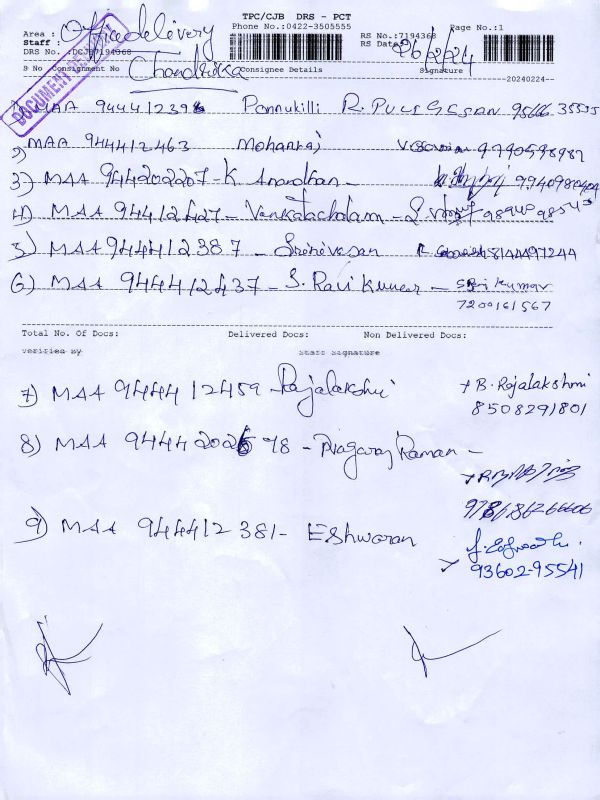 TPC/CJB DRS - PCT
Phone No.:0422-3505555
Page No.:1
Area : Office delivery
RS No.:7194368
Staff :
RS Date: 26/2/24
DRS No. :DCJB7194368
Chandrika
S No Consignment No Consignee Details Signature
20240224
DOCUMENT
1) MAA 944412396 Ponnukilli R. PULGESSAN 95666 35535
2) MAA 944412463 Mohanraj 9790598987
3) MAA 944202207 - K. Anandhan - 9940980404
4) MAA 944412427 - Venkatachalam -
5) MAA 944412387 - Srenivesan 8144497244
6) MAA 944412437 - S. Ravi Kumar - Sri kumar
7200161567
Total No. Of Docs: Delivered Docs: Non Delivered Docs:
Verified By Staff Signature
7) MAA 944412459 Rajalakshmi B. Rajalakshmi
8508291801
8) MAA 944420
9) MAA 944412381 - Eshwaran
93602-95541